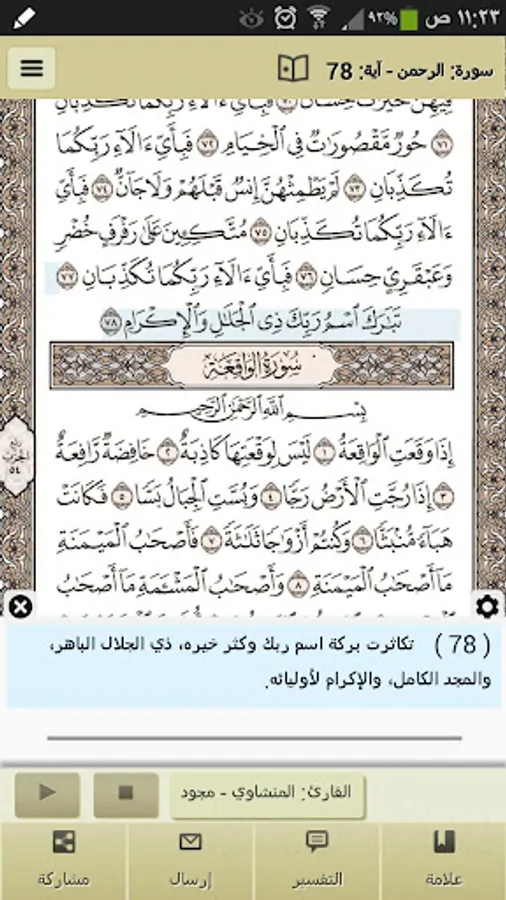 ١١:٢٣ ص ٩٢%
سورة: الرحمن - آية: 78
فِيهِنَّ خَيْرَٰتٌ حِسَانٌ ٧٠ فَبِأَيِّ ءَالَآءِ رَبِّكُمَا تُكَذِّبَانِ
٧١ حُورٌ مَّقْصُورَٰتٌ فِي ٱلْخِيَامِ ٧٢ فَبِأَيِّ ءَالَآءِ رَبِّكُمَا
تُكَذِّبَانِ ٧٣ لَمْ يَطْمِثْهُنَّ إِنسٌ قَبْلَهُمْ وَلَا جَآنٌّ ٧٤ فَبِأَيِّ
ءَالَآءِ رَبِّكُمَا تُكَذِّبَانِ ٧٥ مُتَّكِـِٔينَ عَلَىٰ رَفْرَفٍ خُضْرٍ
وَعَبْقَرِيٍّ حِسَانٍ ٧٦ فَبِأَيِّ ءَالَآءِ رَبِّكُمَا تُكَذِّبَانِ ٧٧
تَبَٰرَكَ ٱسْمُ رَبِّكَ ذِي ٱلْجَلَٰلِ وَٱلْإِكْرَامِ ٧٨
سُورَةُ الوَاقِعَةِ
بِسْمِ ٱللَّهِ ٱلرَّحْمَٰنِ ٱلرَّحِيمِ
إِذَا وَقَعَتِ ٱلْوَاقِعَةُ ١ لَيْسَ لِوَقْعَتِهَا كَاذِبَةٌ ٢ خَافِضَةٌ رَّافِعَةٌ
٣ إِذَا رُجَّتِ ٱلْأَرْضُ رَجًّا ٤ وَبُسَّتِ ٱلْجِبَالُ بَسًّا ٥ فَكَانَتْ
هَبَآءً مُّنۢبَثًّا ٦ وَكُنتُمْ أَزْوَٰجًا ثَلَٰثَةً ٧ فَأَصْحَٰبُ ٱلْمَيْمَنَةِ
مَآ أَصْحَٰبُ ٱلْمَيْمَنَةِ ٨ وَأَصْحَٰبُ ٱلْمَشْـَٔمَةِ مَآ أَصْحَٰبُ
الحزب
٥٤
( 78 ) تكاثرت بركة اسم ربك وكثر خيره، ذي الجلال الباهر،
والمجد الكامل، والإكرام لأوليائه.
القارئ: المنشاوي - مجود
علامة
التفسير
إرسال
مشاركة